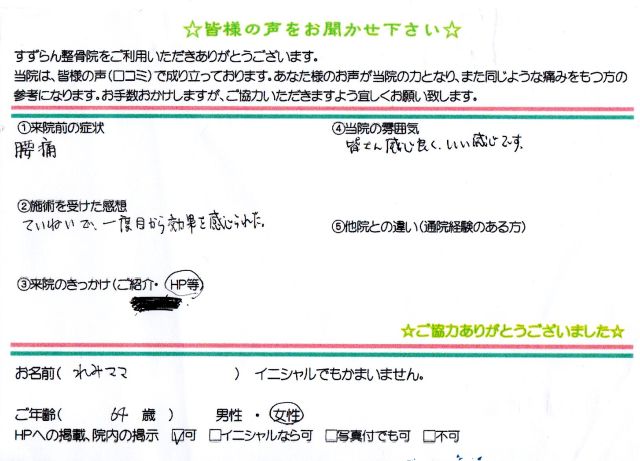 ☆皆様の声をお聞かせ下さい☆
すずらん整骨院をご利用いただきありがとうございます。
当院は、皆様の声(口コミ)で成り立っております。あなた様のお声が当院の力となり、また同じような痛みをもつ方の
参考になります。お手数おかけしますが、ご協力いただきますよう宜しくお願い致します。
①来院前の症状
腰痛
②施術を受けた感想
ていねいで、一度目から効果を感じられた。
③来院のきっかけ(ご紹介・HP等)
④当院の雰囲気
皆さん感じ良く、いい感じです。
⑤他院との違い(通院経験のある方)
☆ご協力ありがとうございました☆
お名前( れみママ ) イニシャルでもかまいません。
ご年齢( 64 歳 ) 男性 ・ 女性
HPへの掲載、院内の掲示 ☑可 □イニシャルなら可 □写真付でも可 □不可